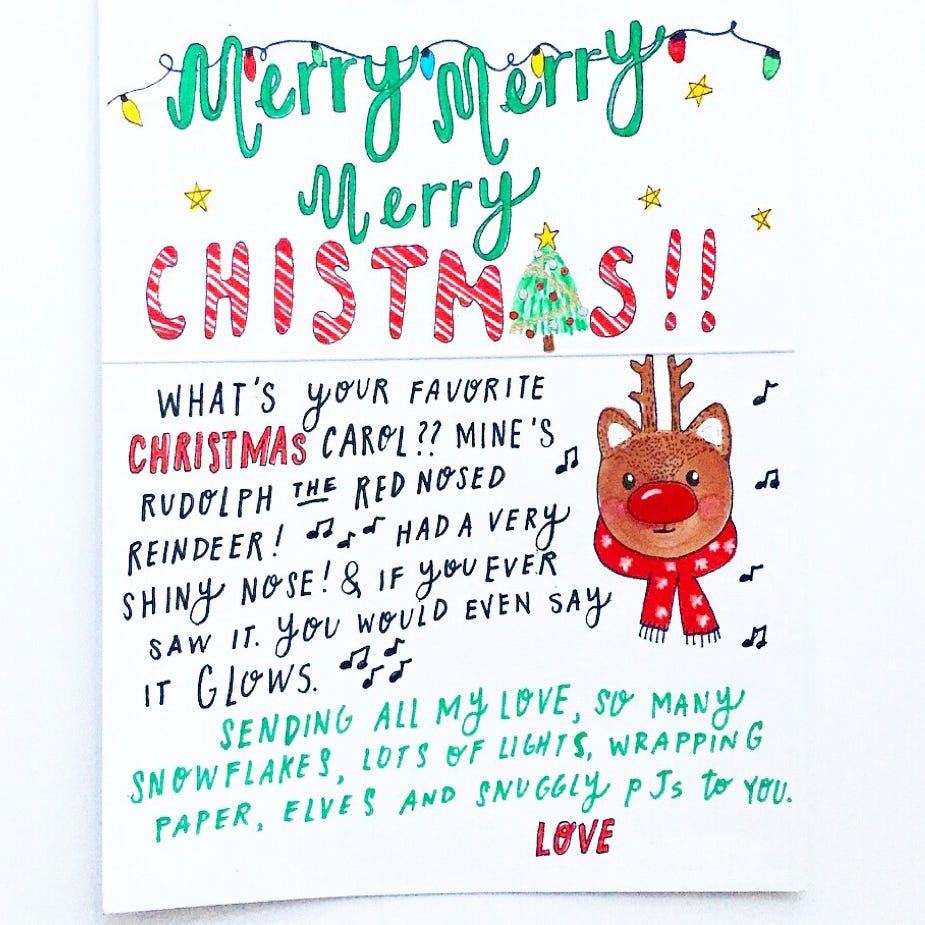 Merry Merry
Merry
CHISTMAS!!
WHAT'S YOUR FAVORITE
CHRISTMAS CAROL?? MINE'S
RUDOLPH THE RED NOSED
REINDEER! HAD A VERY
SHINY NOSE! & IF YOU EVER
SAW IT. YOU WOULD EVEN SAY
IT GLOWS.
SENDING ALL MY LOVE, SO MANY
SNOWFLAKES, LOTS OF LIGHTS, WRAPPING
PAPER, ELVES AND SNUGGLY PJs to YOU.
LOVE